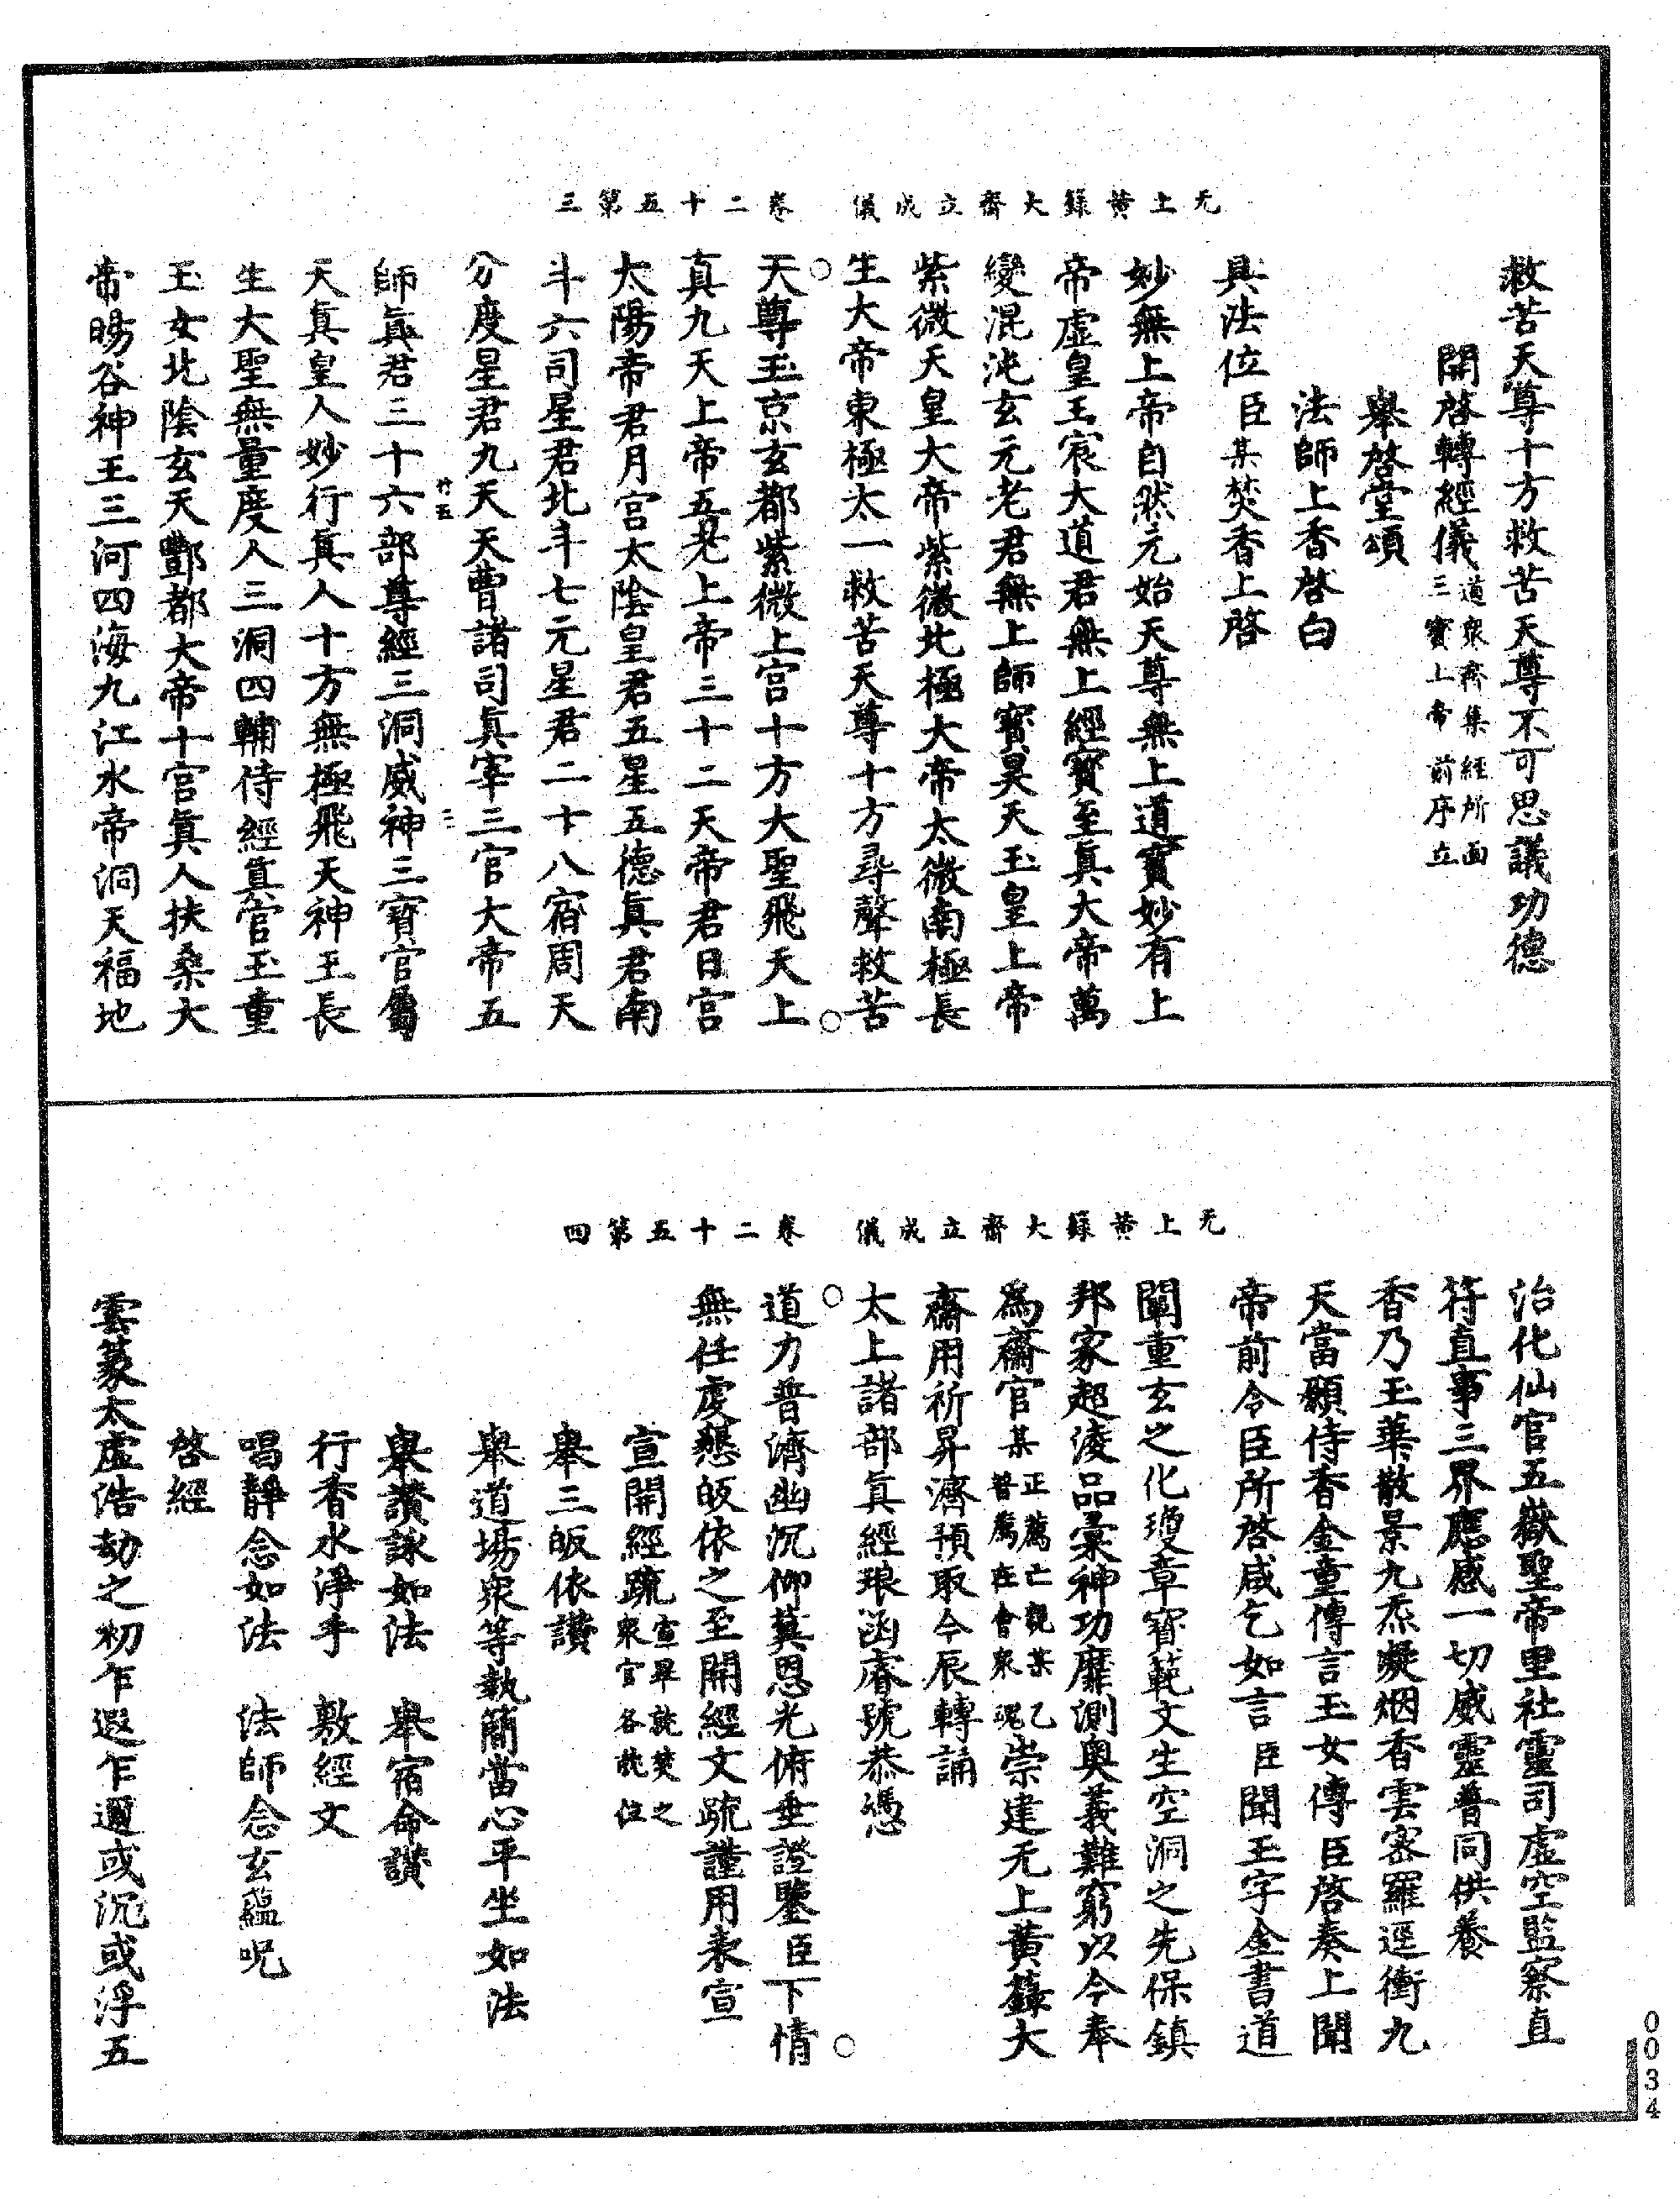 无上黃籙大齋立成儀　卷二十五第三
救苦天尊十方救苦天尊不可思議功德
開啓轉經儀道衆齊集經所面三寶上帝前序立
舉啓堂頌
法師上香啓白
具法位臣某焚香上啓
妙無上帝自然元始天尊無上道寶妙有上
帝虛皇玉宸大道君無上經寶至眞大帝萬
變混沌玄元老君無上師寶昊天玉皇上帝
紫微天皇大帝紫微北極大帝太微南極長
生大帝東極太一救苦天尊十方尋聲救苦
天尊玉京玄都紫微上宮十方大聖飛天上
真九天上帝五老上帝三十二天帝君日宮
太陽帝君月宮太陰皇君五星五德眞君南
斗六司星君北斗七元星君二十八宿周天
分度星君九天天曹諸司眞宰三官大帝五
師眞君三十六部尊經三洞威神三寶官屬
天眞皇人妙行眞人十方無極飛天神王長
生大聖無量度人三洞四輔侍經眞官玉童
玉女北陰玄天酆都大帝十宮眞人扶桑大
帝暘谷神王三河四海九江水帝洞天福地
无上黃籙大齋立成儀　卷二十五第四
治化仙官五嶽聖帝里社靈司虛空監察直
符直事三界應感一切威靈普同供養
香乃玉華散景九炁凝烟香雲密羅逕衝九
天當願侍香金童傳言玉女傳臣啓奏上聞
帝前令臣所啓咸乞如言臣聞玉字金書道
闡重玄之化瓊章寶範文生空洞之先保鎮
邦家超淩品彙神功靡測奧義難窮以今奉
爲齋官某正薦亡親某乙普薦在會衆魂崇建无上黃籙大
齋用祈昇濟預取今辰轉誦
太上諸部眞經琅函睿號恭憑
道力普濟幽沉仰蘄恩光俯垂證鑒臣下情
無任虔懇皈依之至開經文疏謹用表宣
宣開經疏宣畢就焚之衆官各就位
舉三皈依讚
舉道場衆等執簡當心平坐如法
舉讚詠如法　舉宿命讚
行香水淨手　敷經文
唱靜念如法　法師念玄蘊呪
啓經
雲篆太虛浩劫之初乍遐乍邇或沉或浮五
0034